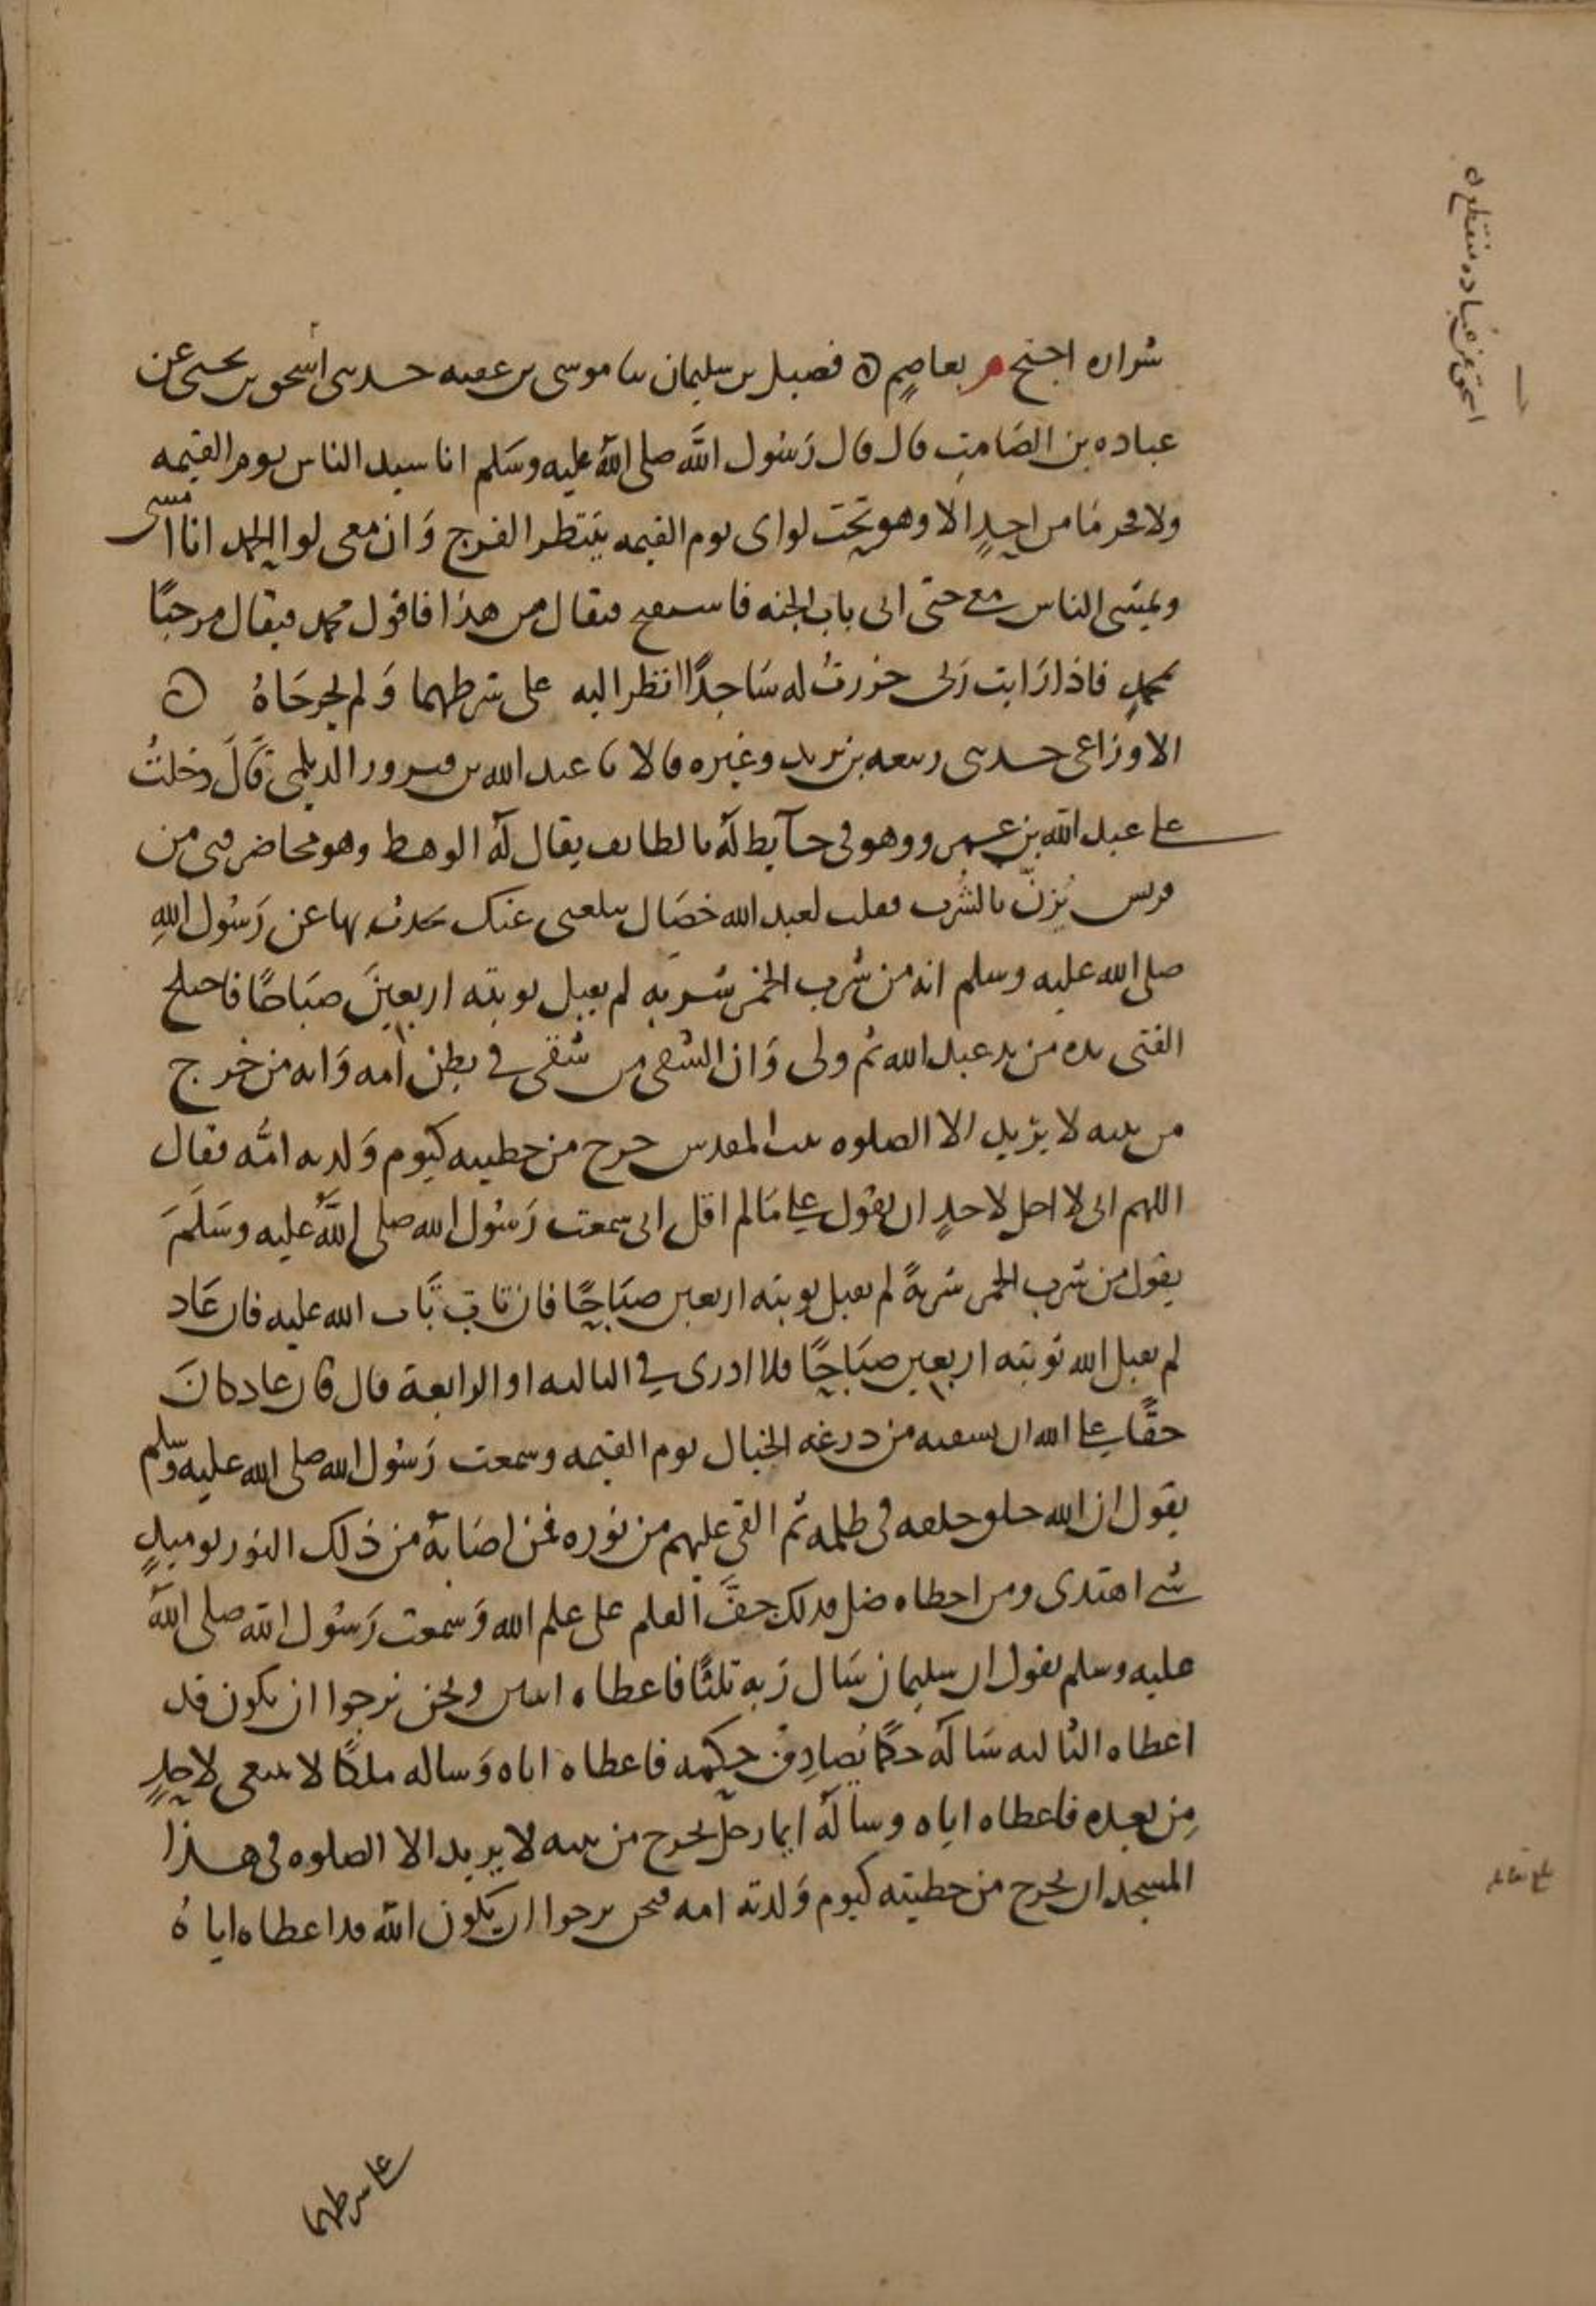 شواذه احتج م بعاصم ه فضيل بن سليمان ثنا موسى بن عقبه حدثنى اسحق بن يحيى عن
عباده بن الصَامتِ قال قال رَسُول اللَّه صلى اللَّه عليه وسَلم انا سيد الناس يوم القيمه
ولا فخر مَا من احدٍ الا وهو تحت لواى يوم القيمه ينتظر الفرج وَان معى لوا الحمد انا امشى
ويمشى الناس معى حتى اتى باب الجنه فاستفتح فيقال من هذا فاقول محمد فيقال مرحبًا
بمحمدٍ فاذا رَايت رَبى خررتُ له سَاجدًا انظر اليه على شرطهما وَلم يخرجَاهُ ه
الاوزاعى حدثنى ربيعه بن يزيد وغيره قالا ثنا عبد الله بن فيروز الديلمى قَالَ دخلتُ
على عبد الله بن عمرو وهو فى حآيط لهُ بالطايف يقال لهُ الوهط وهو محاضر فتى من
قريش يُزنّ بالشُرب فقلت لعبد الله خصَال بلغنى عنك تحدث بها عن رَسُول اللهِ
صلى الله عليه وسلم انه من شرب الخمر شربه لم يقبل توبته اربعينَ صبَاحًا فاختلج
الفتى يده من يد عبد الله ثم ولى وَان الشقى من شقى فى بطن امه وَانه من خرج
من بيته لا يريد الا الصلوه ببيت المقدس خرج من خطيته كيوم وَلدته امُّه فقال
اللهم انى لا احل لاحدٍ ان يقول على مَا لم اقل انى سمعت رَسُول الله صلى اللَّهُ عليه وسَلَّمَ
يقول من شرب الخمر شربةً لم يقبل توبته اربعين صبَاحًا فان تابَ تَاب الله عليه فان عَاد
لم يقبل الله توبته اربعين صبَاحًا فلا ادرى فى الثالثه او الرابعة قال فان عاد كانَ
حقًا على الله ان يسقيه من ردغه الخبال يوم القيمه وسمعت رَسُول الله صلى الله عليه وسلم
يقول ان الله خلق خلقه فى ظلمه ثم القى عليهم من نوره فمن اصَابهُ من ذلك النور يوميذٍ
شى اهتدى ومن اخطاه ضل فذلك جفَّ القلم على علم الله وَسمعت رَسُول الله صلى اللهُ
عليه وسلم يقول ان سليمان سَال رَبه ثلثًا فاعطاه اثنين ونحن نرجوا ان يكون قد
اعطاه الثالثه سَالهُ حكمًا يُصادِف حكمه فاعطاه اياه وَساله ملكًا لا ينبغى لاحدٍ
مِن بعده فاعطاه اياه وسالهُ ايما رجل يخرج من بيته لا يريد الا الصلوه فى هذا
المسجد ان يخرج من خطيته كيوم وَلدته امه فنحن نرجوا ان يكون الله قد اعطاه اياهُ
اسحق عن عباده منقطع ه
بلغ مقابله
على شرطهما